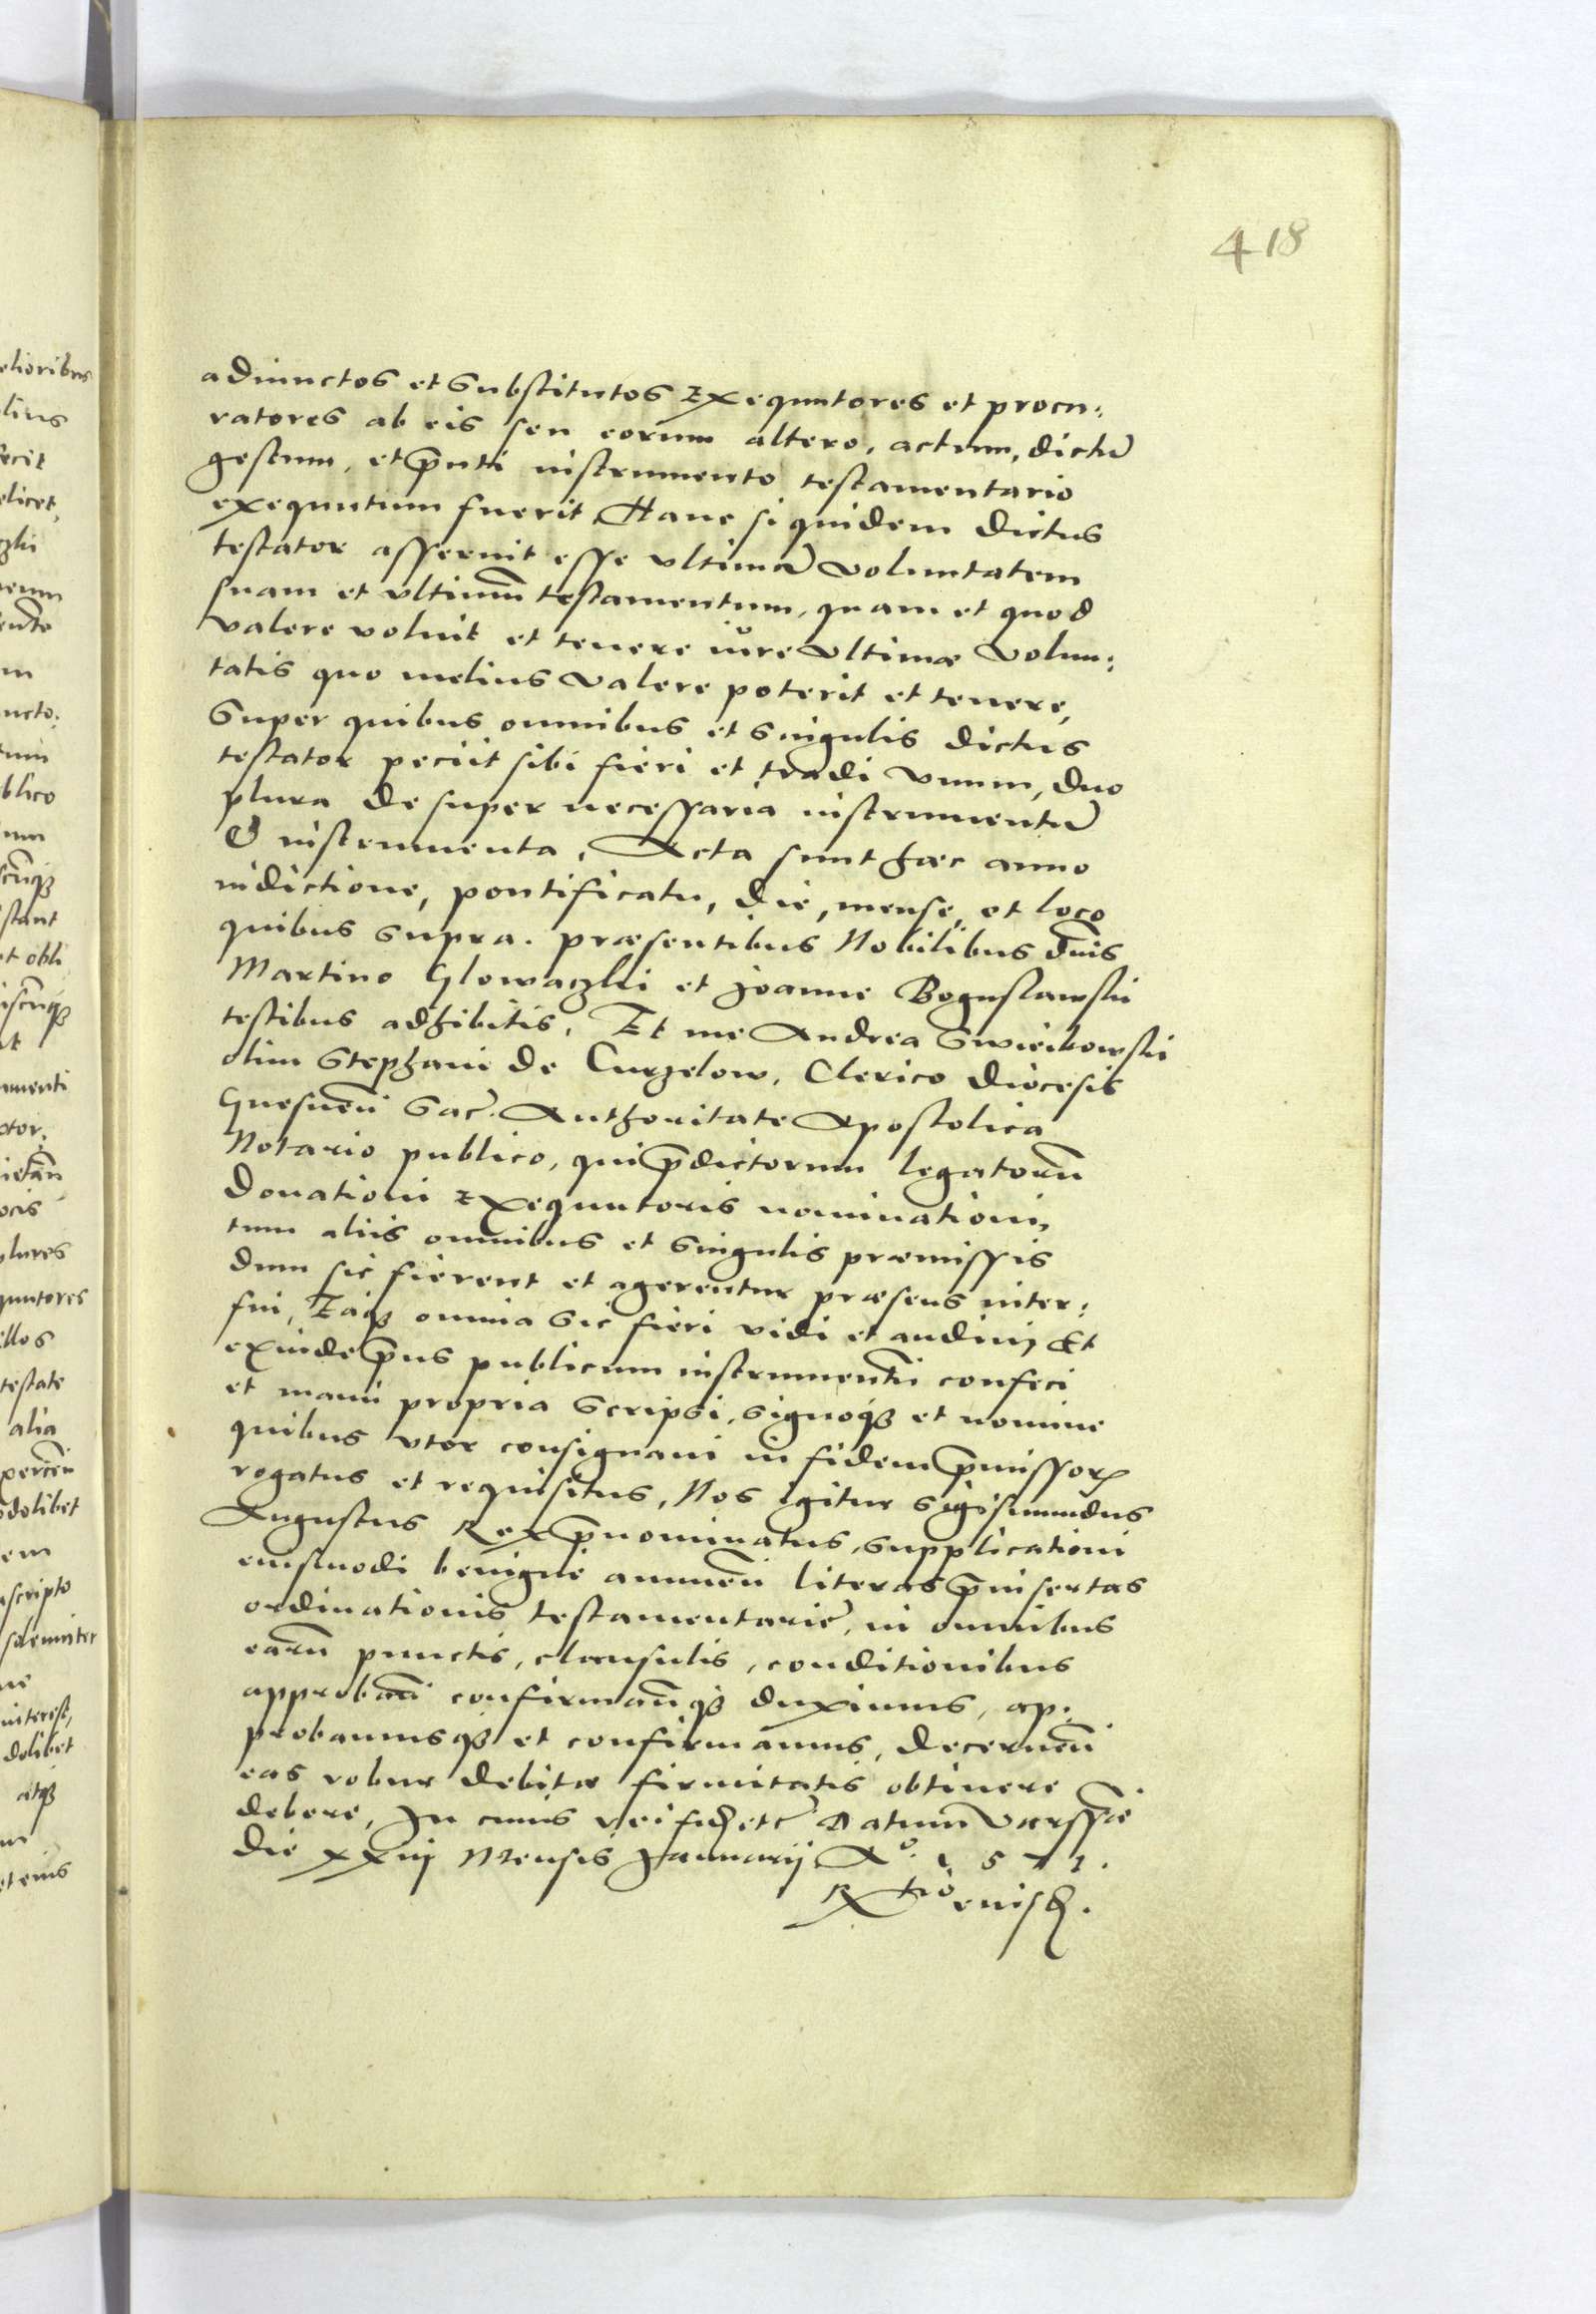 418
adiunctos et substitutos Exequutores et procu:
ratores ab eis seu eorum altero, actum, dictũ
gestum, et p̃nti instrumento testamentario
exequutum fuerit, Hanc siquidem dictus
testator asseruit esse vltimã voluntatem
suam et vltimũ testamentum, quam et quod
valere voluit et tenere iure vltimæ volun:
tatis quo melius valere poterit et tenere,
Super quibus omnibus et singulis dictus
testator peciit sibi fieri et tradi vnum, duo
plura desuper necessaria instrumentũ
& instrumenta, Acta sunt hæc anno
indictione, pontificatu, die, mense, et loco
quibus supra. præsentibus Nobilibus dñis
Martino Glowaczki et Joanne Boguslawski
testibus adhibitis, Et me Andrea Swieikowski
olim Stephani de Curzelow, Clerico diocesis
Gnesneñ Sac̃. Authoritate Apostolica
Notario publico, qui p̃dictorum legatorũ
donationi Exequutoris nominationi,
tum aliis omnibus et singulis præmissis
dum sic fierent et agerentur præsens inter:
fui, Eaq́ꝫ omnia sic fieri vidi et audiui, Et
exinde p̃ns publicum instrumentũ confeci
et manu propria scripsi, signoq́ꝫ et nomine
quibus vtor consignaui in fidem p̃missorꝝ
rogatus et requisitus, Nos igitur Sigismundus
Augustus Rex p̃nominatus, supplicationi
eiusmodi benigne annueñ literas p̃insertas
ordinationis testamentariæ, in omnibus
earũ punctis, clausulis, conditionibus
approbañ confirmañq́ꝫ duximus, ap:
probamusq́ꝫ et confirmamus, decerneñ
eas robur debitæ firmitatis obtinere
debere, In cuius rei fid etc̃ Datum Varssaῦiæ
die xxiij Mensis Januarij A°. 1571.